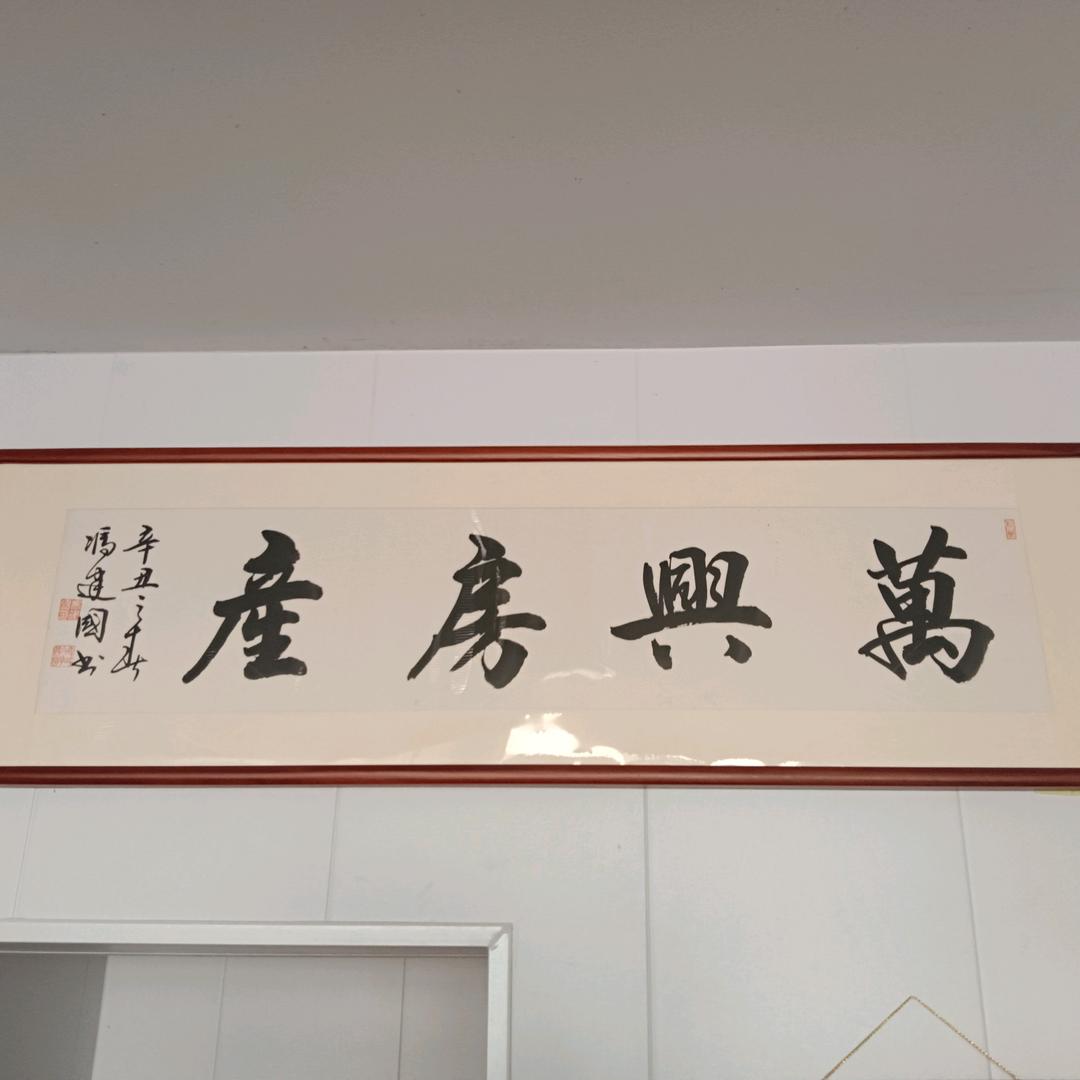 萬興房產
辛丑之春
馮建國书